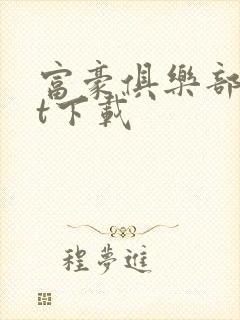 富豪俱樂部
t下載
程夢進